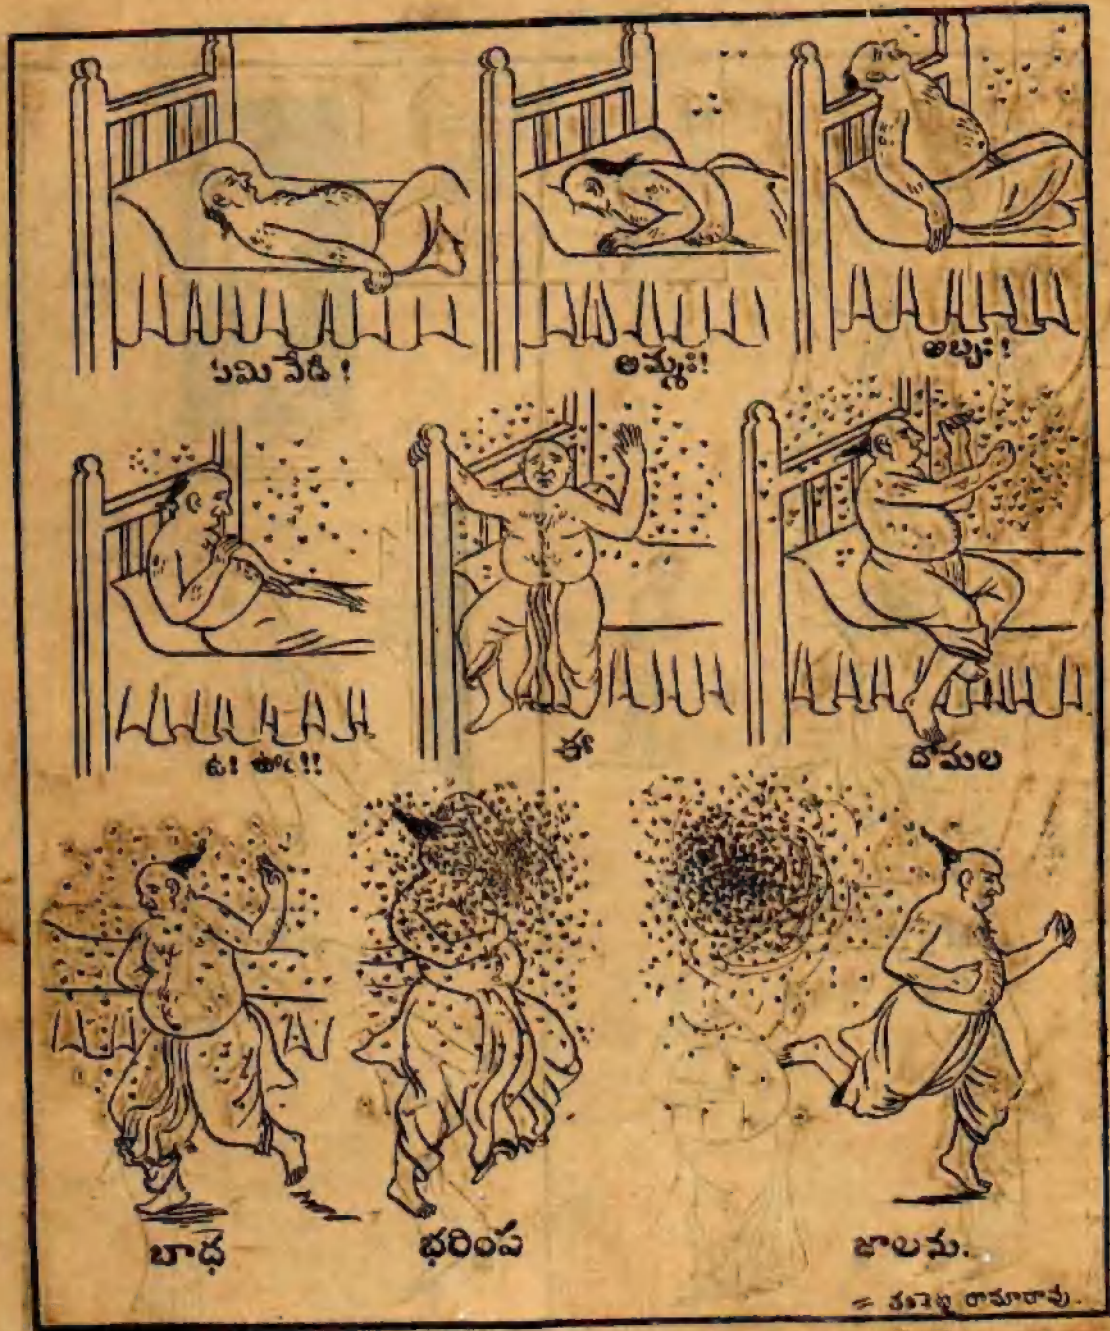 ఏమి వేడి !
అమ్మః!
అబ్బః!
ఉః ఊఁ!!
ఈ
దోమల
బాధ
భరింప
జాలను.
రామారావు.